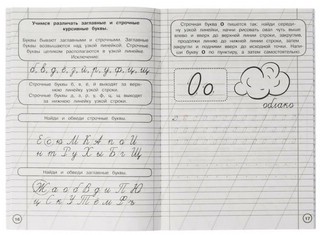 Учимся различать заглавные и строчные
курсивные буквы.
Буквы бывают заглавными и строчными. Заглавные
буквы возвышаются над узкой линейкой. Строчные
буквы целиком располагаются в узкой линейке.
Исключения:
б, в, д, з, й, р, у, ф, ц, щ
Строчные буквы б, в, й выходят за верх-
нюю линейку узкой строки.
Строчные буквы д, з, р, у, ф, ц, щ выходят
за нижнюю линейку узкой строки.
Найди и обведи строчные буквы.
Е с ю М К А п о И
н т Р У х Ы Б г Щ
Найди и обведи заглавные буквы.
Ж а о б В д и П Ю
16
Строчная буква О пишется так: найди середи-
ну узкой линейки, начни писать овал чуть выше
влево и вверх до верхней линии строки, закругли,
продолжи линию до нижней линии строки, затем
закругли и подними вверх до исходной точки. Напи-
ши букву О по пунктиру, а затем самостоятельно.
Оо
облако
17